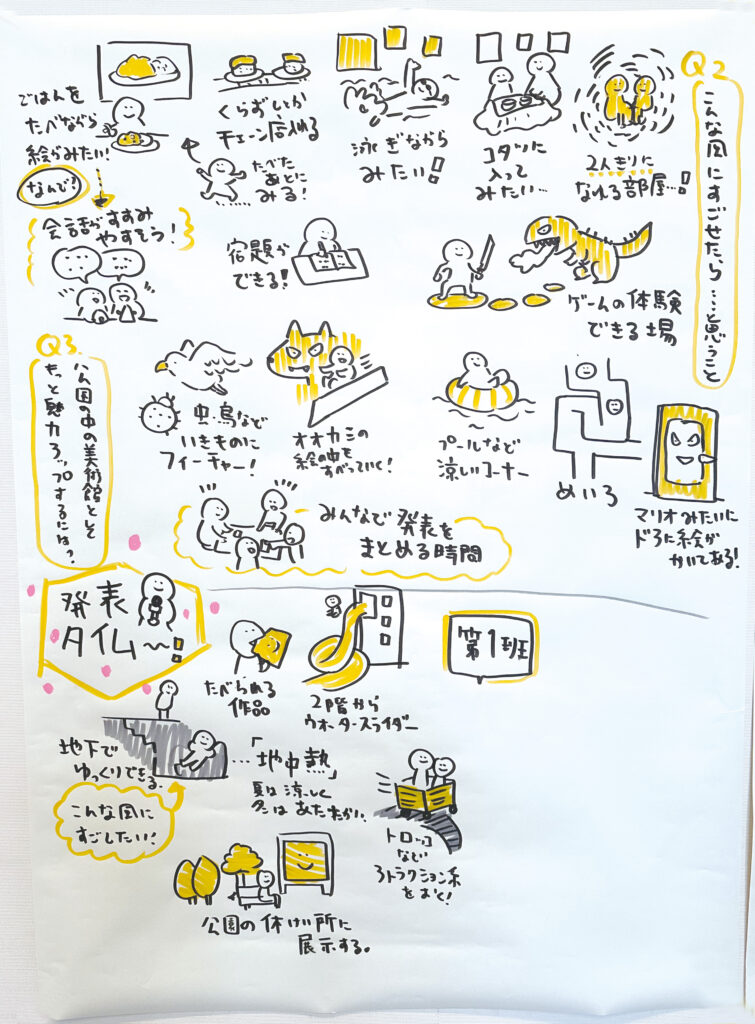 Q2
こんな風にすごせたら……と思うこと
ごはんを
たべながら
絵がみたい!
なんで?
会話がすすみ
やすそう!
くらずしとか
チェーン店入れる
たべた
あとに
みる!
泳ぎながら
みたい!
コタツに
入って
みたい…
2人きりに
なれる部屋…!
宿題が
できる!
ゲームの体験
できる場
Q3.
公園の中の美術館として
もっと魅力アップするには?
虫鳥など
いきものに
フィーチャー!
オオカミの
絵の中を
すべっていく!
プールなど
涼しいコーナー
めいろ
マリオみたいに
ドアに絵が
かいてある!
みんなで発表を
まとめる時間
発表
タイム〜!
たべられる
作品
2階から
ウォータースライダー
第1班
地下で
ゆっくりできる。
…「地中熱」
夏は涼しく
冬はあたたかい。
こんな風に
すごしたい!
トロッコ
など
アトラクション系
をおく!
公園の休けい所に
展示する。